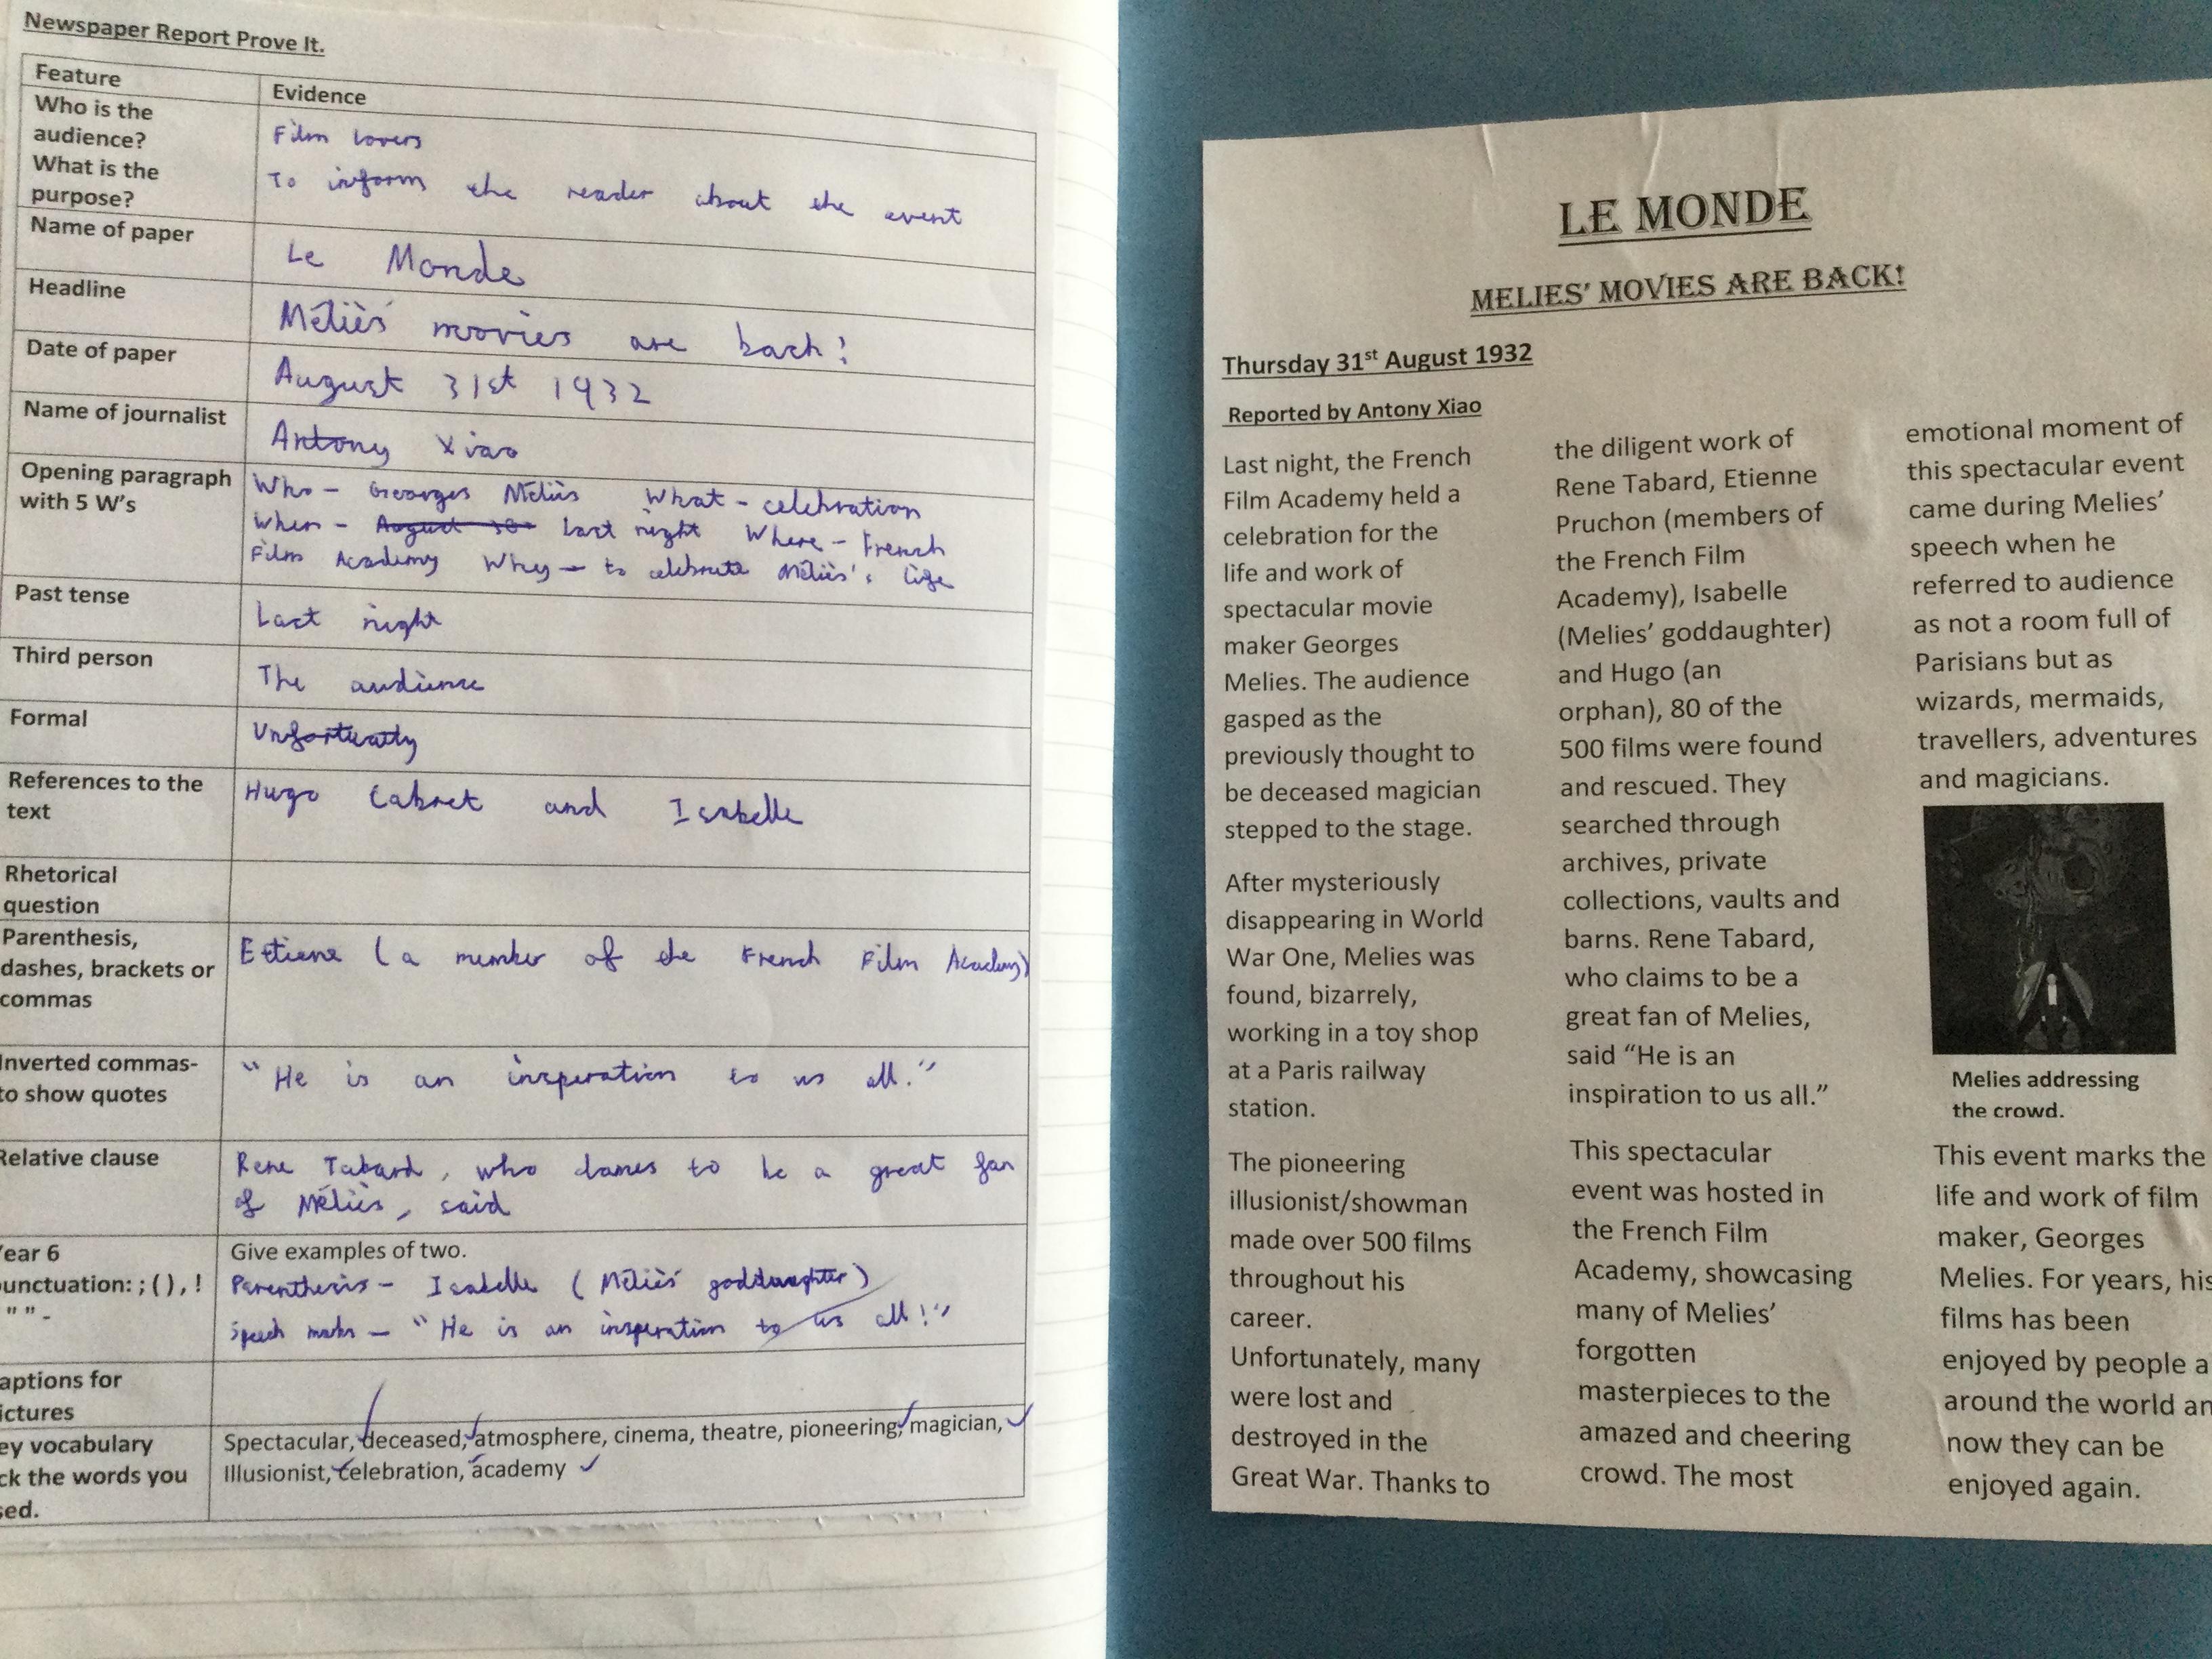 Newspaper Report Prove It.
Feature
Evidence
Who is the
audience?
What is the
purpose?
Film lovers
To inform the reader about the event
Name of paper
Le Monde
Headline
Méliès' movies are back!
Date of paper
August 31st 1932
Name of journalist
Antony Xiao
Opening paragraph
with 5 W's
Who - Georges Méliès What - celebration
When - August 30 Last night Where - French
Film Academy Why - to celebrate Méliès's life
Past tense
Last night
Third person
The audience
Formal
References to the
text
Hugo Cabret and Isabelle
Rhetorical
question
Parenthesis,
dashes, brackets or
commas
Ettiene (a member of the French Film Academy)
Inverted commas-
to show quotes
"He is an insperation to us all."
Relative clause
Rene Tabard, who clames to be a great fan
of Méliès, said
ear 6
punctuation: ; ( ) , !
" " -
Give examples of two.
Parenthesis - Isabelle (Méliès' goddaughter)
Speech marks - "He is an insperation to us all!"
aptions for
ictures
ey vocabulary
ck the words you
sed.
Spectacular, deceased, atmosphere, cinema, theatre, pioneering, magician,
Illusionist, celebration, academy
LE MONDE
MELIES' MOVIES ARE BACK!
Thursday 31st August 1932
Reported by Antony Xiao
Last night, the French
Film Academy held a
celebration for the
life and work of
spectacular movie
maker Georges
Melies. The audience
gasped as the
previously thought to
be deceased magician
stepped to the stage.
After mysteriously
disappearing in World
War One, Melies was
found, bizarrely,
working in a toy shop
at a Paris railway
station.
The pioneering
illusionist/showman
made over 500 films
throughout his
career.
Unfortunately, many
were lost and
destroyed in the
Great War. Thanks to
the diligent work of
Rene Tabard, Etienne
Pruchon (members of
the French Film
Academy), Isabelle
(Melies' goddaughter)
and Hugo (an
orphan), 80 of the
500 films were found
and rescued. They
searched through
archives, private
collections, vaults and
barns. Rene Tabard,
who claims to be a
great fan of Melies,
said "He is an
inspiration to us all."
This spectacular
event was hosted in
the French Film
Academy, showcasing
many of Melies'
forgotten
masterpieces to the
amazed and cheering
crowd. The most
emotional moment of
this spectacular event
came during Melies'
speech when he
referred to audience
as not a room full of
Parisians but as
wizards, mermaids,
travellers, adventures
and magicians.
Melies addressing
the crowd.
This event marks the
life and work of film
maker, Georges
Melies. For years, his
films has been
enjoyed by people a
around the world an
now they can be
enjoyed again.